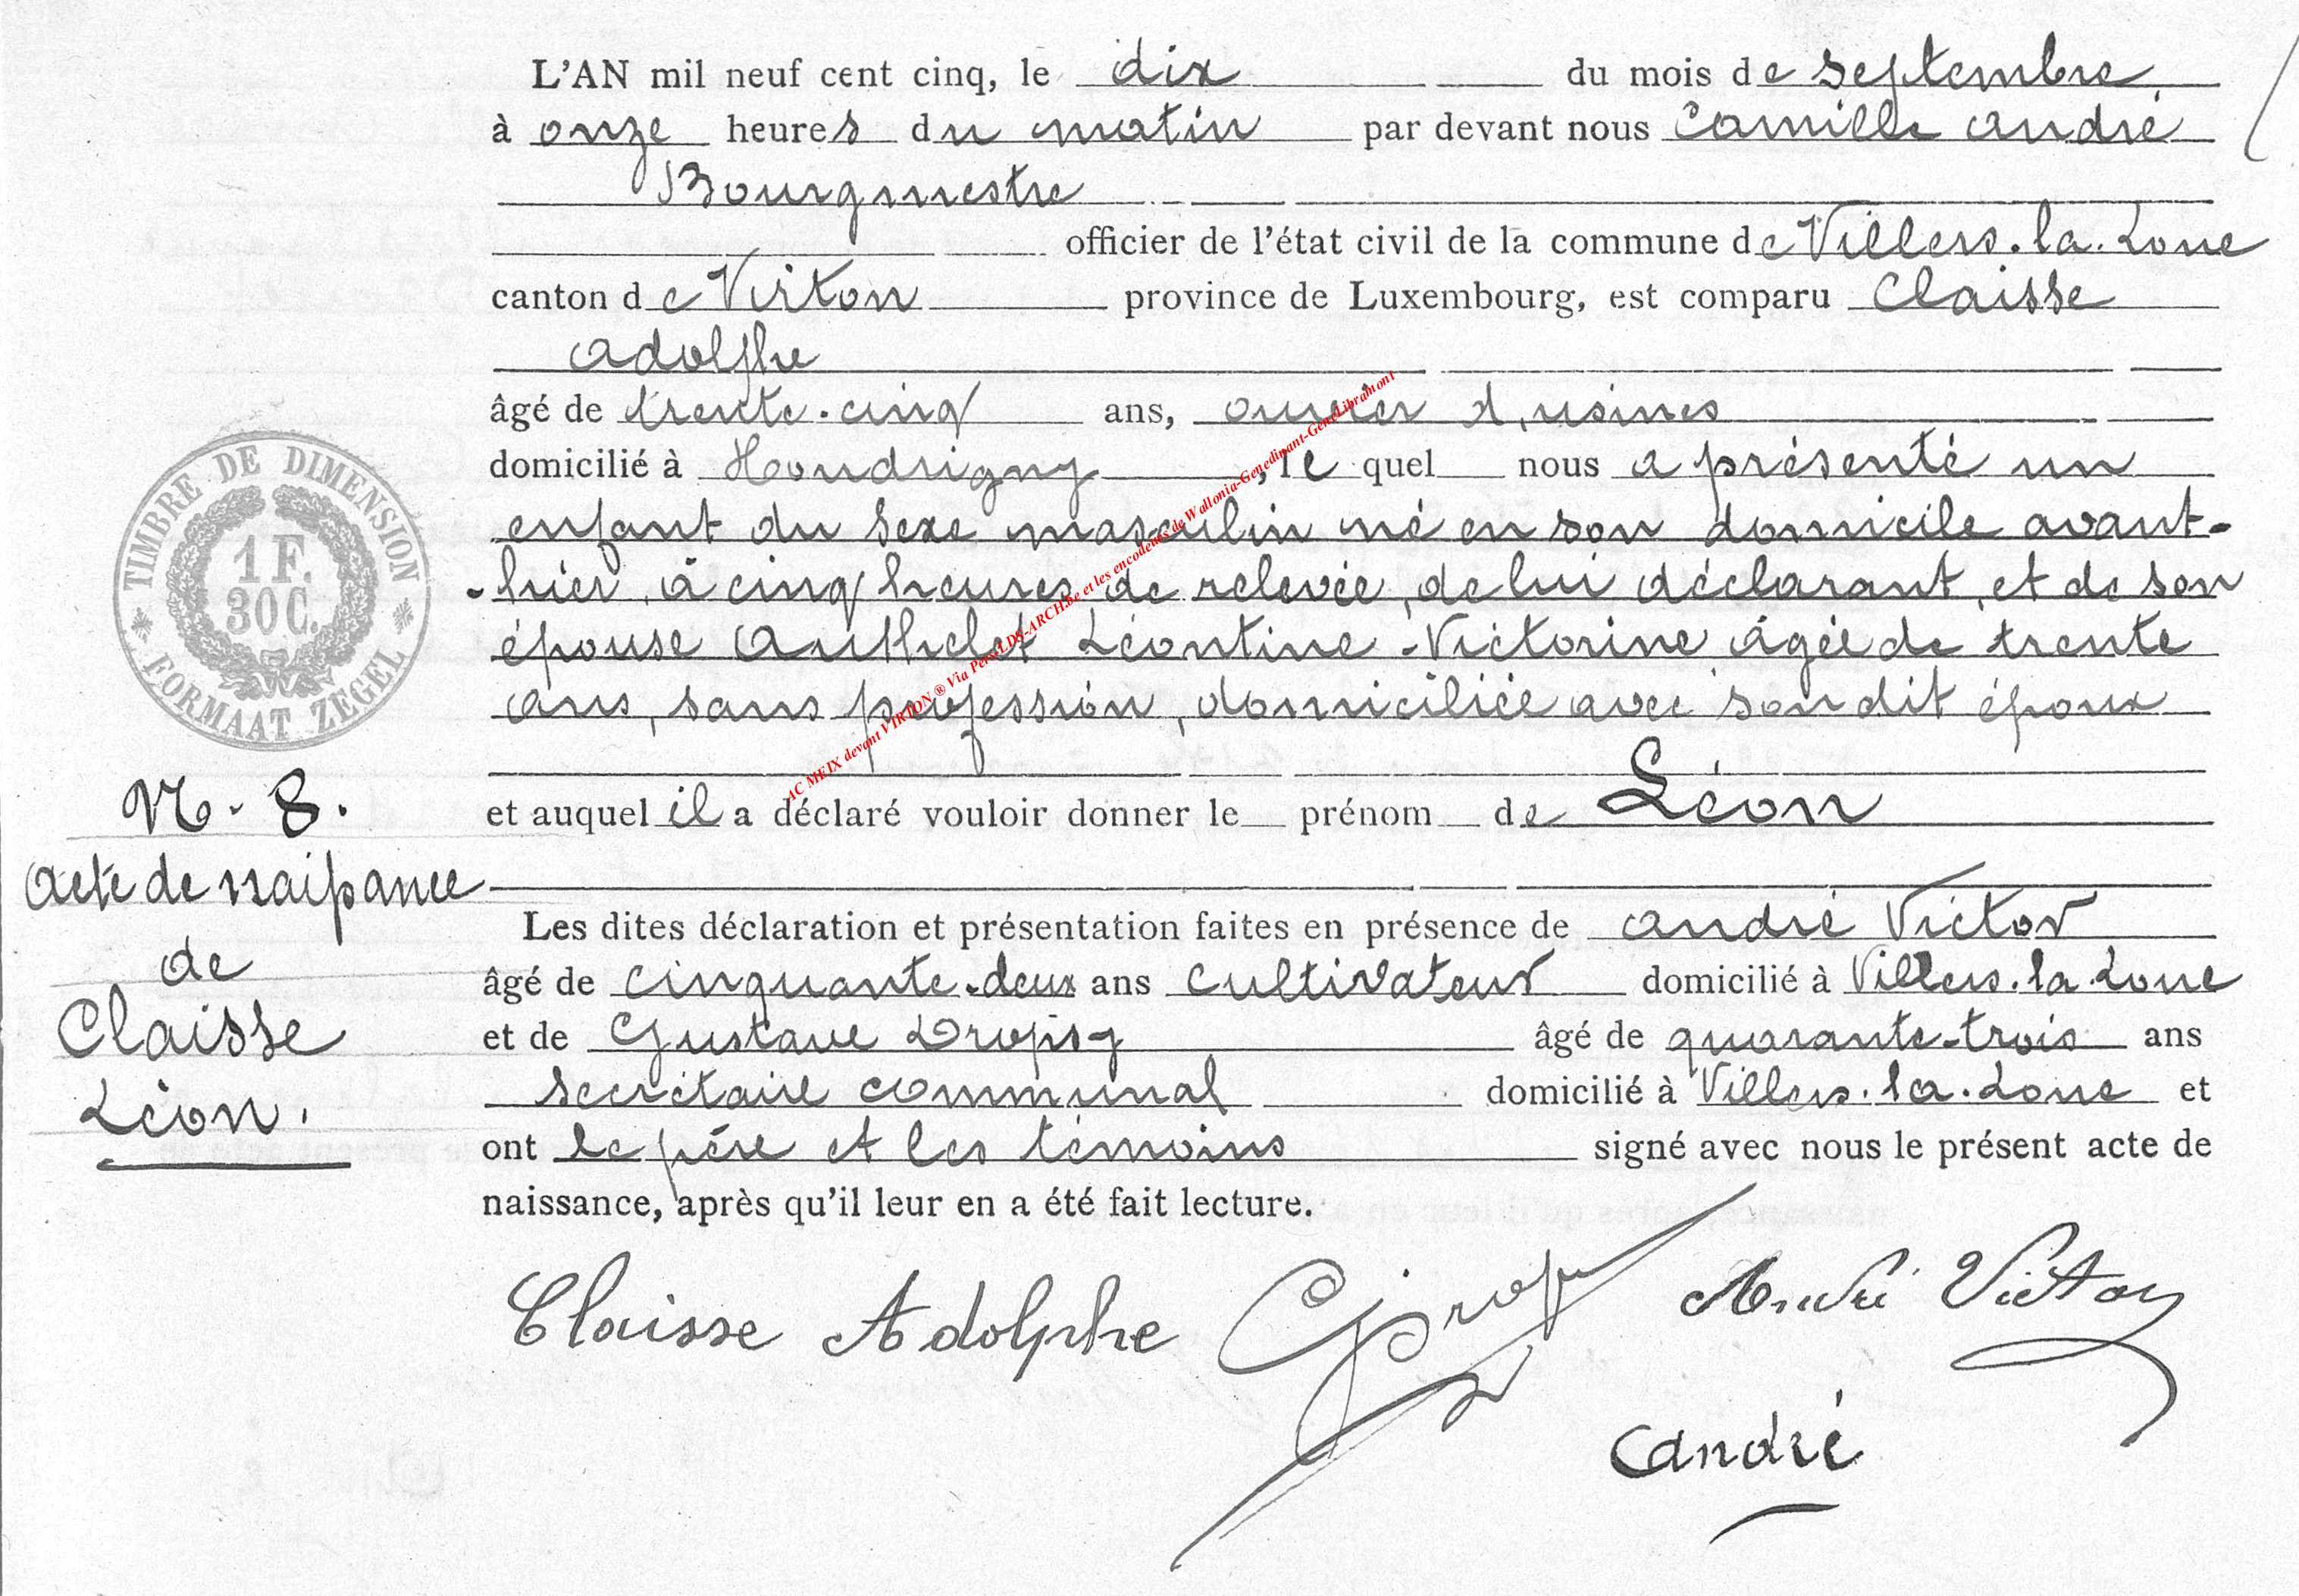 L'AN mil neuf cent cinq, le dix du mois de septembre
à onze heures du matin par devant nous Camille André
Bourgmestre
officier de l'état civil de la commune de Villers-la-Loue
canton de Virton province de Luxembourg, est comparu Claisse
Adolphe
âgé de trente-cinq ans, ouvrier d'usines
domicilié à Houdrigny, lequel nous a présenté un
enfant du sexe masculin né en son domicile avant-
-hier, à cinq heures de relevée, de lui déclarant, et de son
épouse Léontine-Victorine âgée de trente
ans, sans profession, domiciliée avec son dit époux
et auquel il a déclaré vouloir donner le prénom de Léon
Les dites déclaration et présentation faites en présence de André Victor
âgé de cinquante-deux ans cultivateur domicilié à Villers-la-Loue
et de Gustave Dropsy âgé de quarante-trois ans
secrétaire communal domicilié à Villers-la-Loue et
ont le père et les témoins signé avec nous le présent acte de
naissance, après qu'il leur en a été fait lecture.
Claisse Adolphe André Victor
André
TIMBRE DE DIMENSION
1 F.
30 C.
FORMAAT ZEGEL
N°. 8.
Acte de naissance
de
Claisse
Léon.
AC MEIX devant VIRTON ® Via Pero LDS-ARCH.be et les encodeurs de Wallonia-Genedinant-GeneLibramont